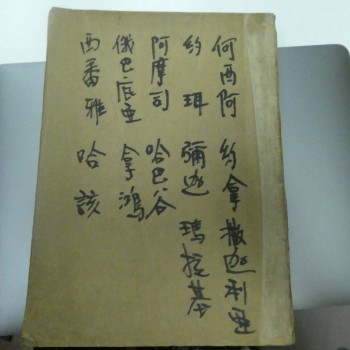 何西阿 約拿 撒迦利亜
約珥 彌迦 瑪拉基
阿摩司 哈巴谷
俄巴底亜 拿鴻
西番雅 哈該